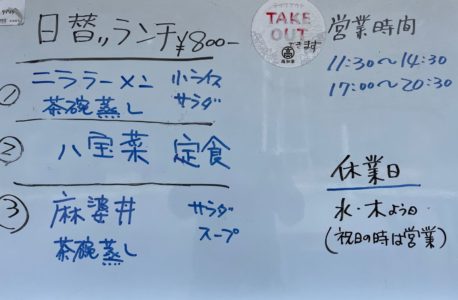 日替ランチ¥800-
① ニララーメン 小ライス
茶碗蒸し サラダ
② 八宝菜 定食
③ 麻婆丼 サラダ
茶碗蒸し スープ
テイクアウト
TAKE OUT
できます
営業時間
11:30〜14:30
17:00〜20:30
休業日
水・木よう日
(祝日の時は営業)